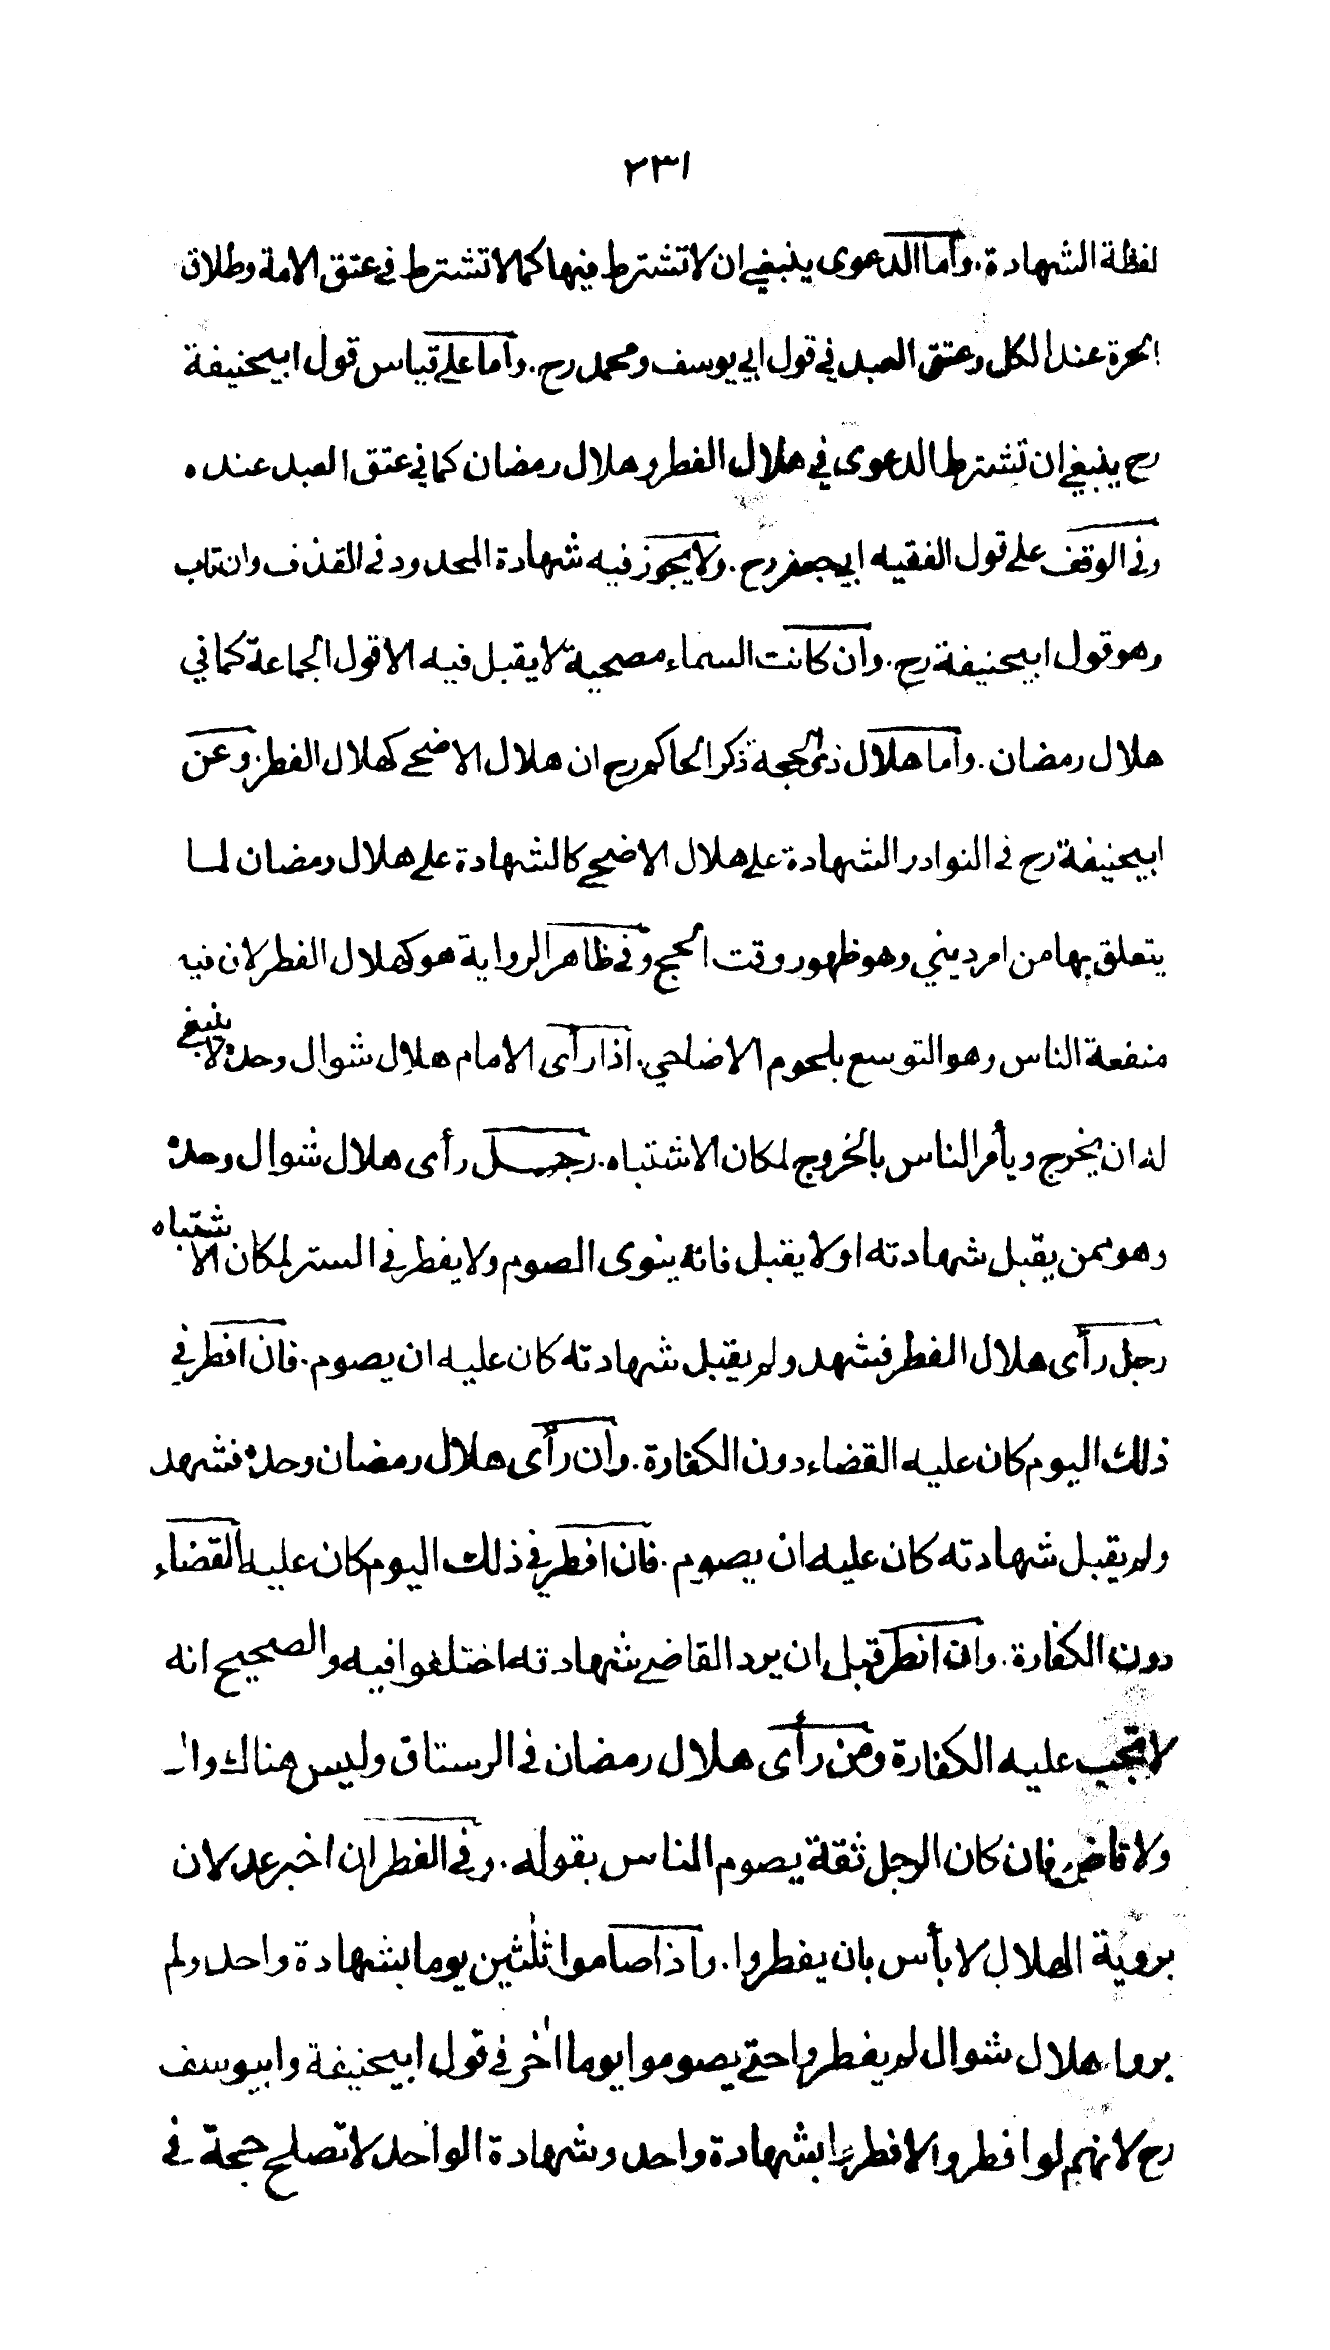 ٢٣١
لفظة الشهادة . وأما الدعوى ينبغي ان لا تشترط فيها كما لا تشترط في عتق الامة وطلاق
الحرة عند الكل وعتق العبد في قول ابي يوسف ومحمد رح . وأما على قياس قول ابيحنيفة
رح ينبغي ان تشترط الدعوى في هلال الفطر وهلال رمضان كما في عتق العبد عنده
وفي الوقف على قول الفقيه ابي جعفر رح . ولا يجوز فيه شهادة المحدود في القذف وان تاب
وهو قول ابيحنيفة رح . وان كانت السماء مصحية لا يقبل فيه الا قول الجماعة كما في
هلال رمضان . وأما هلال ذي الحجة ذكر الحاكم رح ان هلال الاضحى كهلال الفطر . وعن
ابيحنيفة رح في النوادر الشهادة على هلال الاضحى كالشهادة على هلال رمضان لما
يتعلق بها من امر ديني وهو ظهور وقت الحج وفي ظاهر الرواية هو كهلال الفطر لان فيه
منفعة الناس وهو التوسع بلحوم الاضاحي . اذا رأى الامام هلال شوال وحده لا ينبغي
له ان يخرج ويأمر الناس بالخروج لمكان الاشتباه . رجل رأى هلال شوال وحده
وهو ممن يقبل شهادته او لا يقبل فانه ينوى الصوم ولا يفطر في الستر لمكان الاشتباه
رجل رأى هلال الفطر فشهد ولم يقبل شهادته كان عليه ان يصوم . فان افطر في
ذلك اليوم كان عليه القضاء دون الكفارة . وان رأى هلال رمضان وحده فشهد
ولم يقبل شهادته كان عليه ان يصوم . فان افطر في ذلك اليوم كان عليه القضاء
دون الكفارة . وان افطر قبل ان يرد القاضي شهادته اختلفوا فيه والصحيح انه
لا تجب عليه الكفارة ومن رأى هلال رمضان في الرستاق وليس هناك وال
ولا قاض فان كان الرجل ثقة يصوم الناس بقوله . وفي الفطر ان اخبر عدلان
بروية الهلال لا بأس بان يفطروا . واذا صاموا ثلثين يوما بشهادة واحد ولم
يروا هلال شوال لم يفطروا حتى يصوموا يوما اخر في قول ابيحنيفة وابيوسف
رح لانهم لو افطروا لافطروا بشهادة واحد وشهادة الواحد لا تصلح حجة في